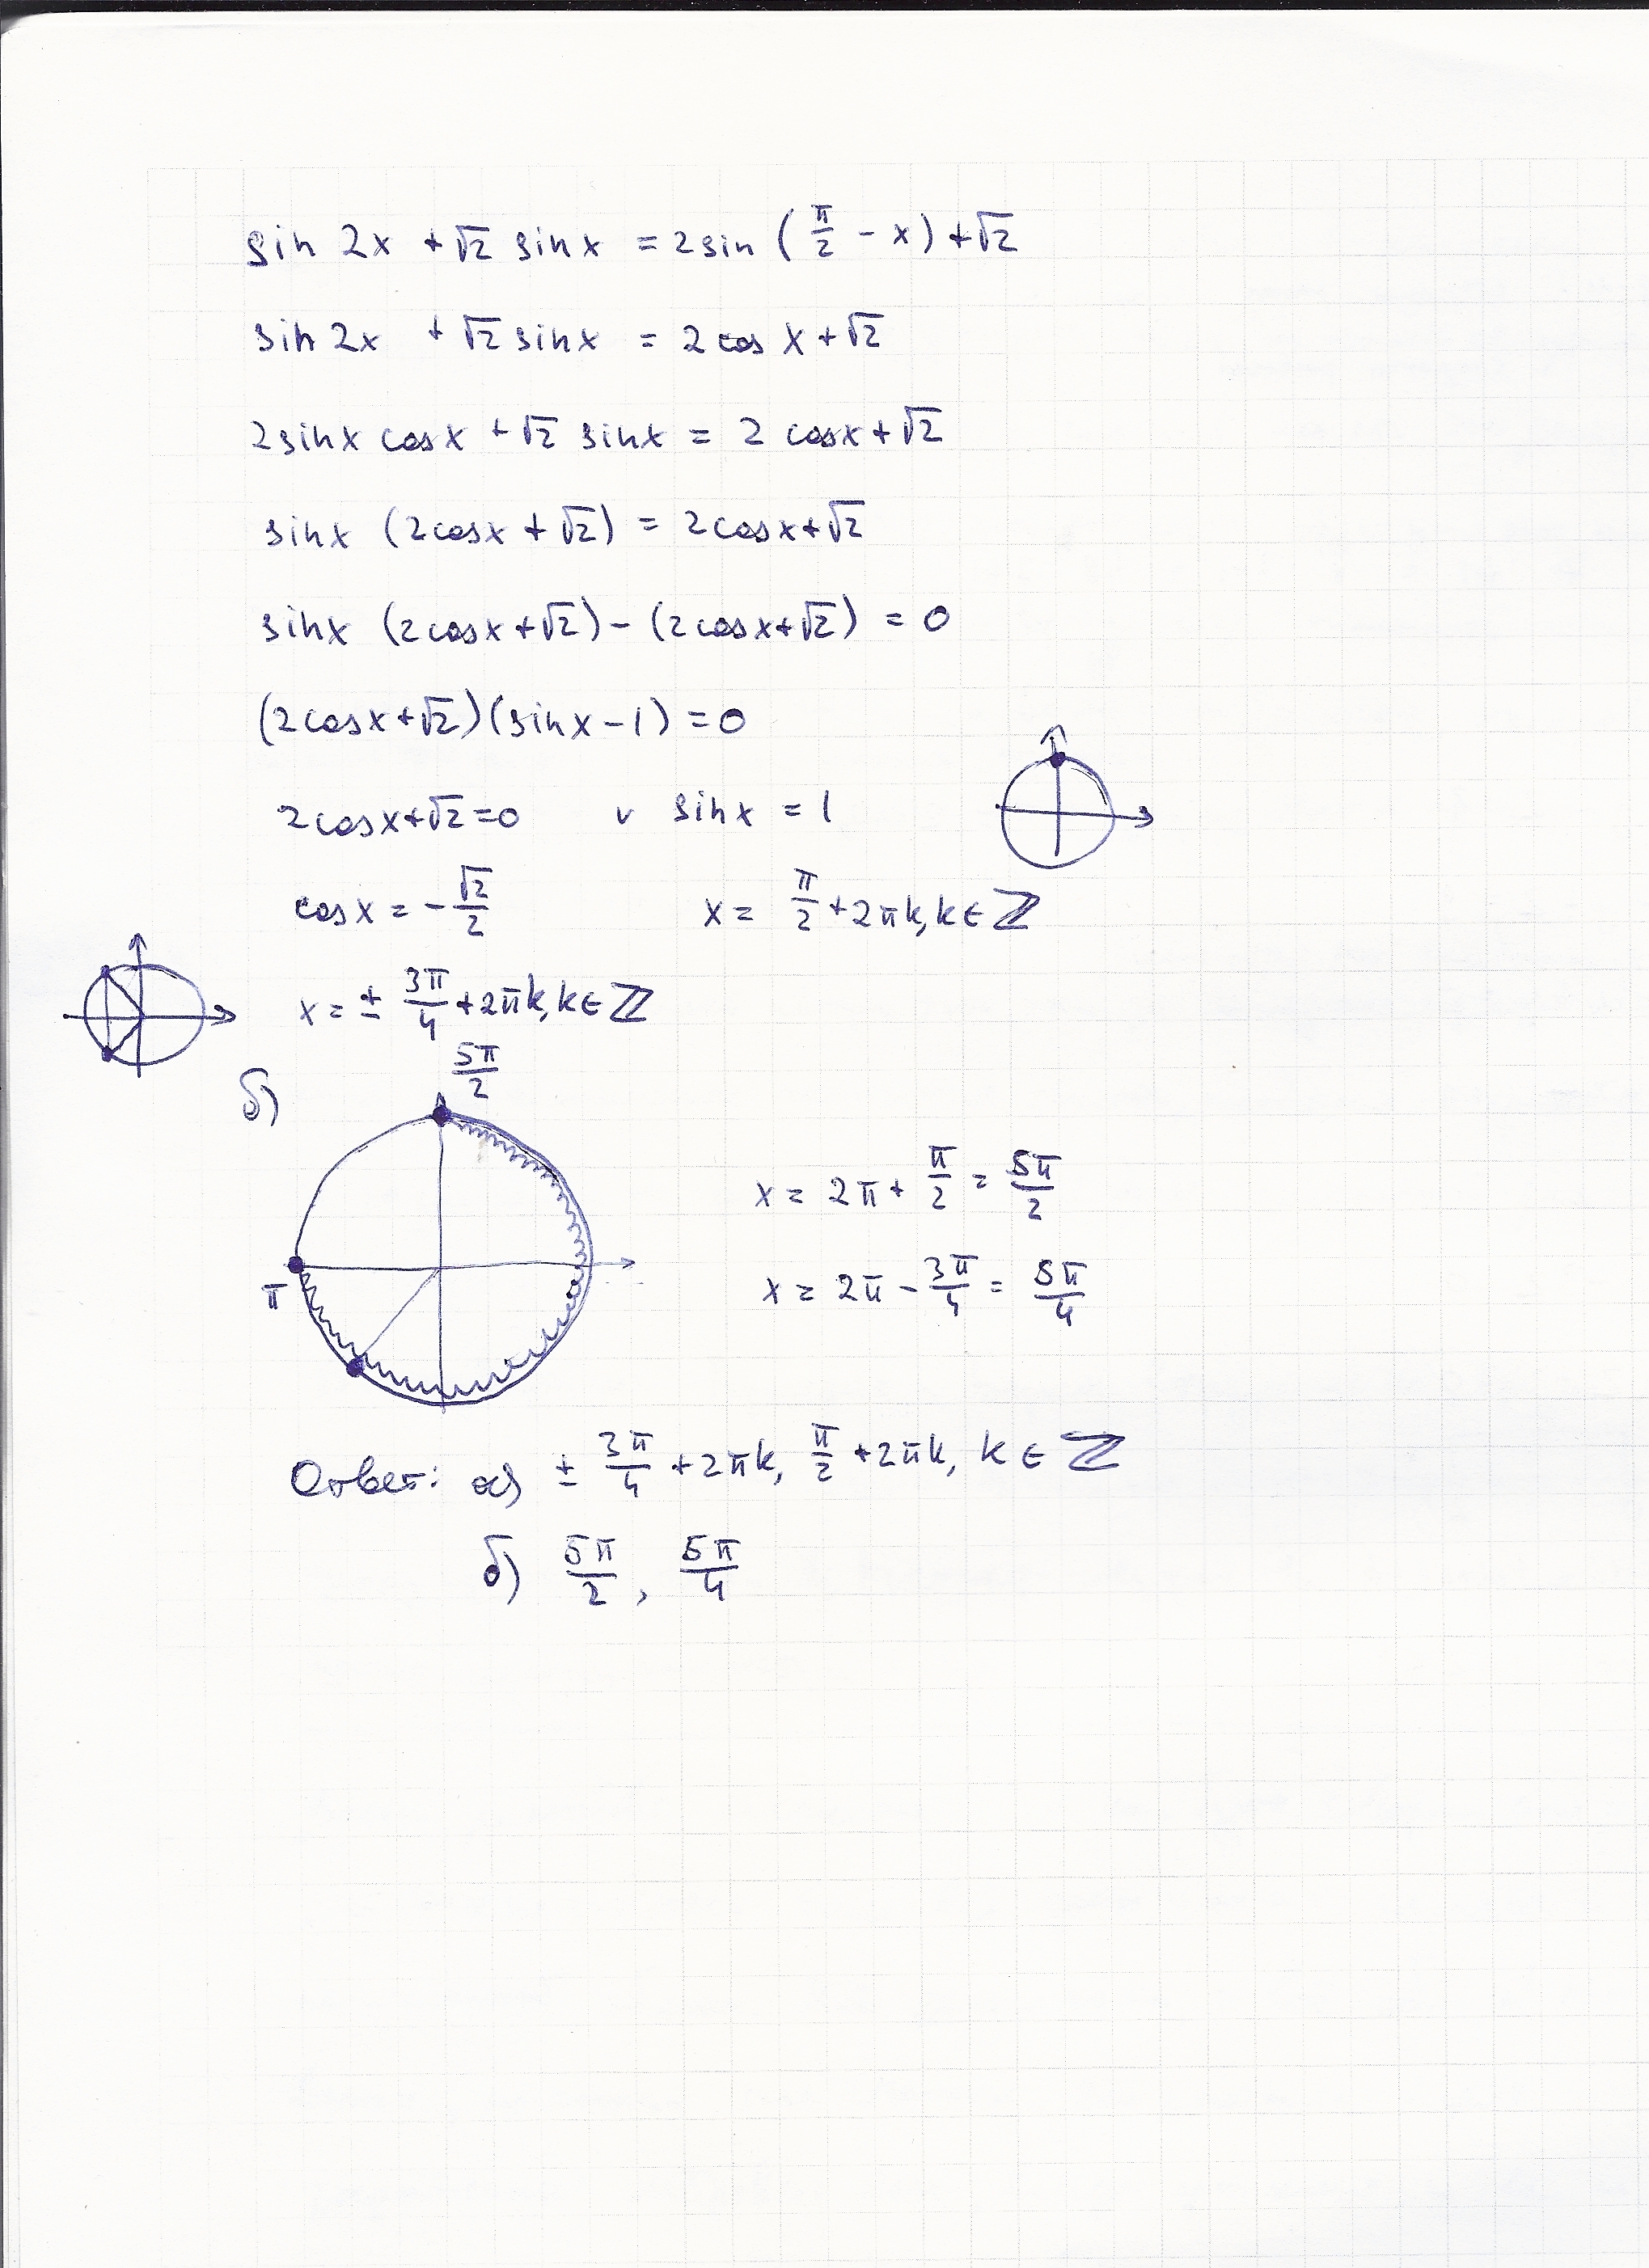 sin 2x + √2 sin x = 2 sin (π/2 - x) + √2
sin 2x + √2 sin x = 2 cos x + √2
2 sin x cos x + √2 sin x = 2 cos x + √2
sin x (2 cos x + √2) = 2 cos x + √2
sin x (2 cos x + √2) - (2 cos x + √2) = 0
(2 cos x + √2)(sin x - 1) = 0
2 cos x + √2 = 0 v sin x = 1
cos x = -√2/2 x = π/2 + 2πk, k ∈ ℤ
x = ± 3π/4 + 2πk, k ∈ ℤ
б)
5π/2
x = 2π + π/2 = 5π/2
π
x = 2π - 3π/4 = 5π/4
Ответ: а) ± 3π/4 + 2πk, π/2 + 2πk, k ∈ ℤ
б) 5π/2, 5π/4